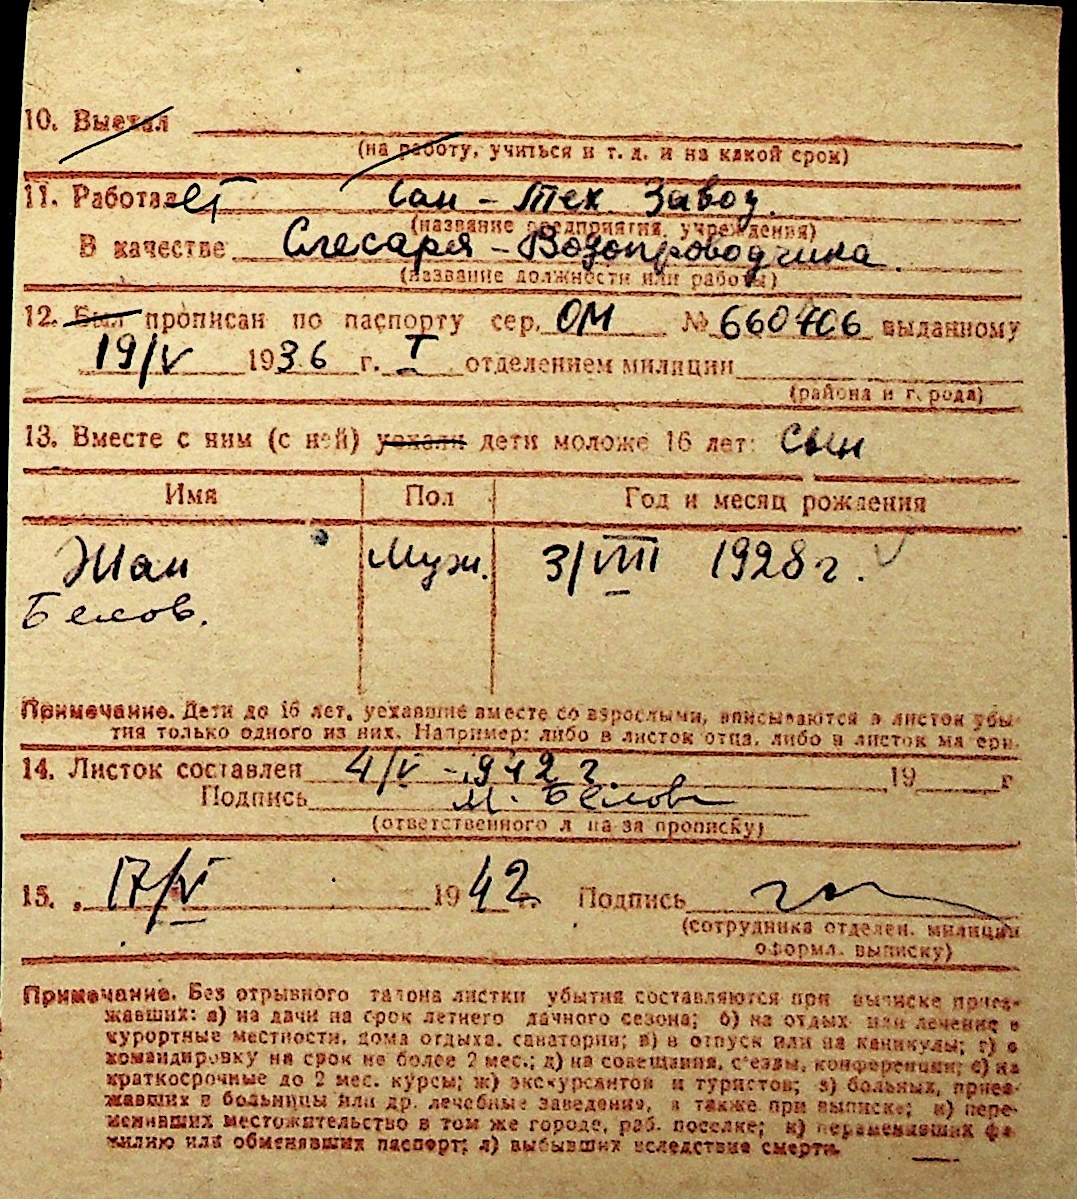 10. Выехал
(на работу, учиться и т. д. и на какой срок)
11. Работает Сан-Тех Завод.
(название предприятия, учреждения)
В качестве Слесаря-Водопроводчика.
(название должности или работы)
12. Был прописан по паспорту сер. ОМ № 660406 выданному
19/V 1936 г. I отделением милиции
(района и города)
13. Вместе с ним (с ней) уехали дети моложе 16 лет: сын
Имя Пол Год и месяц рождения
Жан Муж. 3/VIII 1928 г.
Белов.
Примечание. Дети до 16 лет, уехавшие вместе со взрослыми, вписываются в листок убы-
тия только одного из них. Например: либо в листок отца, либо в листок матери.
14. Листок составлен 4/V-1942 г. 19 г
Подпись М. Белова
(ответственного лица за прописку)
15. 17/V 1942 г. Подпись
(сотрудника отделен. милиции
оформл. выписку)
Примечание. Без отрывного талона листки убытия составляются при выписке приез-
жавших: а) на дачи на срок летнего дачного сезона; б) на отдых или лечение в
курортные местности, дома отдыха, санатории; в) в отпуск или на каникулы; г) в
командировку на срок не более 2 мес.; д) на совещания, с'езды, конференции; е) на
краткосрочные до 2 мес. курсы; ж) экскурсантов и туристов; з) больных, приез-
жавших в больницы или др. лечебные заведения, а также при выписке; и) пере-
менивших местожительство в том же городе, раб. поселке; к) переменивших фа-
милию или обменявших паспорт; л) выбывших вследствие смерти.